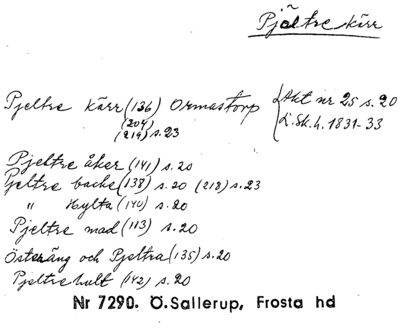 Pjältre kärr
Pjeltre kärr (136) Ormastorp {Akt nr 25 s. 20
(204) L. Sk. h. 1831-33
(219) s. 23
Pjeltre åker (141) s. 20
Pjeltre backe (138) s. 20 (218) s. 23
" Hylta (140) s. 20
Pjeltre mad (113) s. 20
Österäng och Pjeltra (135) s. 20
Pjeltrehult (142) s. 20
Nr 7290. Ö.Sallerup, Frosta hd